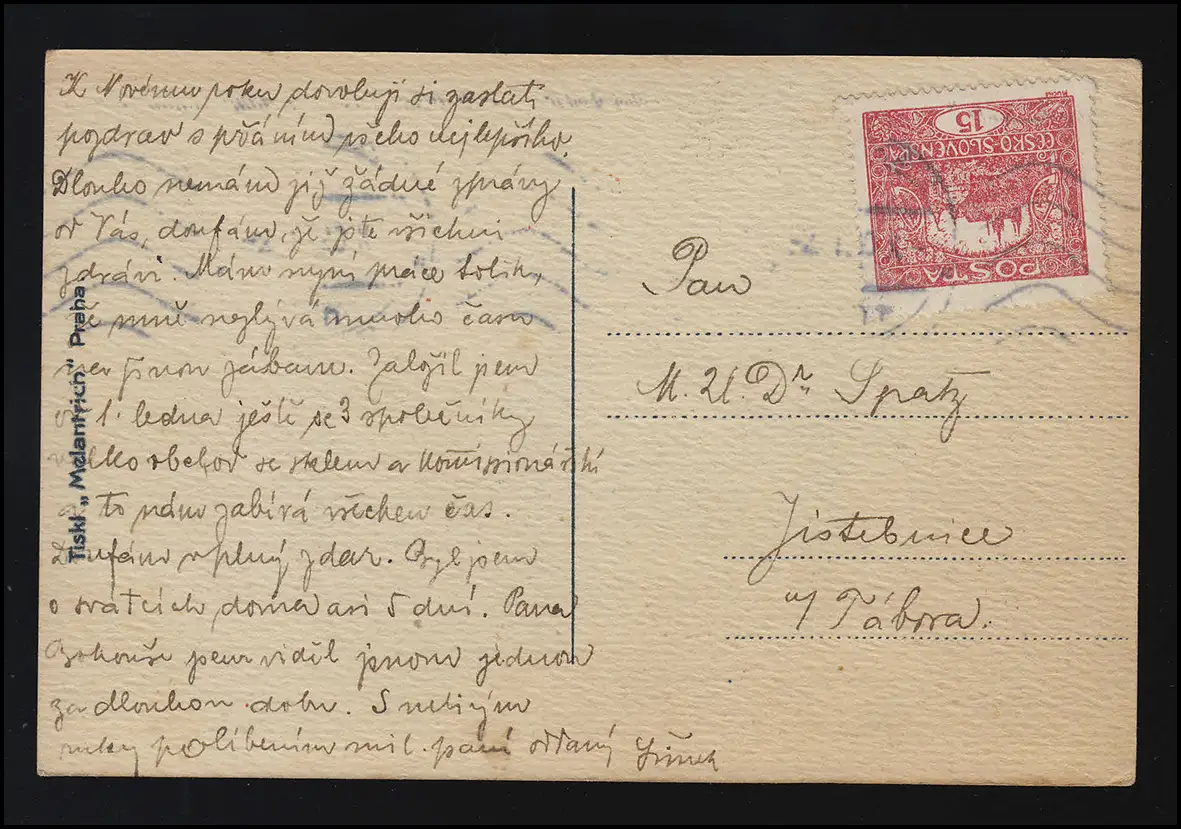 K Novému roku dovoluji si zaslati
pozdrav s přáním všeho nejlepšího.
Dlouho nemám již žádné zprávy
od Vás, doufám, že jste všichni
zdrávi. Mám nyní práce tolik,
že mně nezbývá mnoho času
jinou zábavu. Založil jsem
1. ledna ještě se 3 společníky
velkoobchod se sklem a komissionářství
a to nám zabírá všechen čas.
Doufám v plný zdar. Byl jsem
o svátcích doma asi 5 dní. Pana
Bohouše jsem viděl jenom jednou
za dlouhou dobu. S uctivým
ruky políbením mil. paní oddaný
Tiskl „Melantrich" Praha
POSTA
ČESKO-SLOVENSKÁ
15
Pan
M. U. Dr. Spatz
Jistebnice
u Tábora.